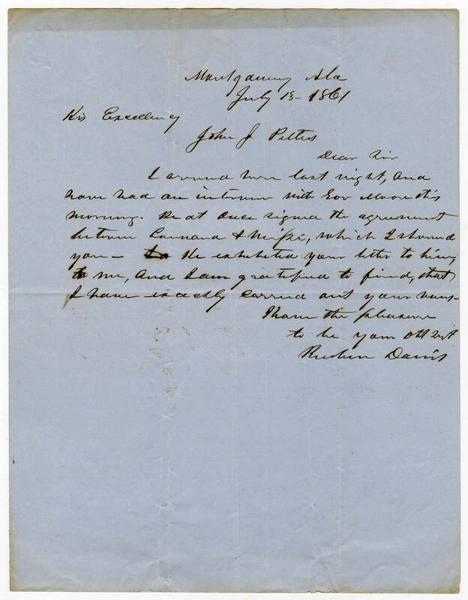 Montgomery Ala
July 13 - 1861
His Excellency
John J Pettus
Dear Sir
I arrived here last night, and
have had an interview with Gov Moore this
morning. He at once signed the agreement
between & Missi, which I showed
you - He exhibited your letter to him,
to me, and I am gratified to find, that
I have exactly carried out your views
I have the pleasure
to be your Obt Svt
Reuben Davis